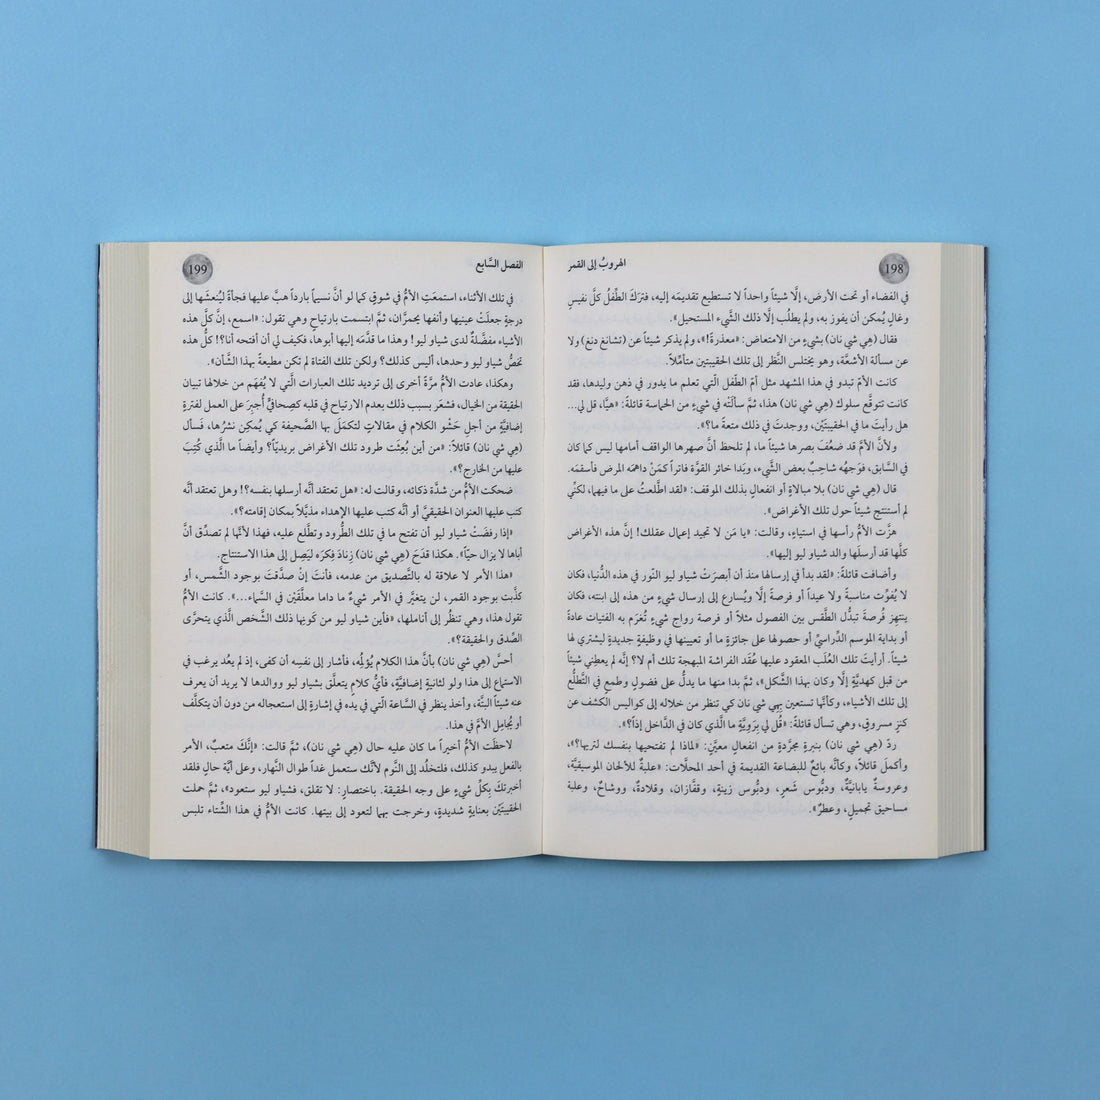 198
الهروبُ إلى القمر
في الفضاء أو تحت الأرض، إلَّا شيئاً واحداً لا تستطيع تقديمَه إليه، فتركَ الطِّفلُ كلَّ نفيسٍ
وغالٍ يُمكن أن يفوز به، ولم يطلُب إلَّا ذلك الشَّيء المستحيل».
فقال (هِي شي نان) بشيءٍ من الامتعاض: «معذرةً!»، ولم يذكر شيئاً عن (تشانغ دنغ) ولا
عن مسألة الأشعَّة، وهو يختلس النَّظر إلى تلك الحقيبتين متأمِّلاً.
كانت الأمُّ تبدو في هذا المشهد مثل أمّ الطّفل الّتي تعلم ما يدور في ذهن وليدها، فقد
كانت تتوقَّع سلوك (هِي شي نان) هذا، ثمَّ سألَتْه في شيءٍ من الحماسة قائلةً: «هيَّا، قل لي...
هل رأيتَ ما في الحقيبَتَيْن، ووجدتَ في ذلك متعةً ما؟».
ولأنَّ الأمَّ قد ضعُفَ بصرها شيئاً ما، لم تلحظ أنَّ صهرها الواقف أمامها ليس كما كان
في السَّابق، فوَجهُه شاحِبٌ بعض الشَّيء، وبَدا خائر القوَّة فاتراً كمَنْ داهمَه المرض فأسقمَه.
قال (هِي شي نان) بلا مبالاةٍ أو انفعالٍ بذلك الموقف: «لقد اطَّلعتُ على ما فيهما، لكنّي
لم أستنتج شيئاً حول تلك الأغراض».
هزَّت الأمُّ رأسها في استياءٍ، وقالت: «يا مَن لا تجيد إعمال عقلك! إنَّ هذه الأغراض
كلّها قد أرسلها والد شياو ليو إليها».
وأضافت قائلةً: «لقد بدأ في إرسالها منذ أن أبصرَتْ شياو ليو النّور في هذه الدُّنيا، فكان
لا يُفوِّت مناسبةً ولا عيداً أو فرصةً إلَّا ويُسارع إلى إرسال شيءٍ من هذه إلى ابنته، فكان
ينتهز فُرصةَ تبدُّل الطَّقس بين الفصول مثلاً أو فرصة رواج شيءٍ تُغرَم به الفتيات عادةً
أو بداية الموسم الدِّراسيِّ أو حصولها على جائزةٍ ما أو تعيينها في وظيفةٍ جديدةٍ ليشتري لها
شيئاً. أرأيتَ تلك العُلَب المعقود عليها عُقَد الفراشة المبهجة تلك أم لا؟ إنَّه لم يعطِني شيئاً
من قبل كهديَّةٍ إلَّا وكان بهذا الشَّكل»، ثمَّ بدا منها ما يدلُّ على فضولٍ وطمعٍ في التَّطلُّع
إلى تلك الأشياء، وكأنَّها تستعين بِهِي شي نان كي تنظر من خلاله إلى كواليس الكشف عن
كنزٍ مسروقٍ، وهي تسأل قائلةً: «قُل لي بِرَويَّةٍ ما الَّذي كان في الدَّاخل إذاً؟».
ردّ (هِي شي نان) بنبرةٍ مجرَّدةٍ من انفعالٍ معيَّنٍ: «لماذا لم تفتحيها بنفسك لتريها؟»،
وأكملَ قائلاً، وكأنَّه بائعٌ للبضاعة القديمة في أحد المحلَّات: «علبةٌ للألحان الموسيقيَّة،
وعروسةٌ يابانيَّةٌ، ودبُّوس شَعرٍ، ودبُّوس زينةٍ، وقفَّازان، وقلادةٌ، ووشاحٌ، وعلبة
مساحيق تجميلٍ، وعطرٌ».
الفصل السَّابع
199
في تلك الأثناء، استمعَتِ الأمُّ في شوقٍ كما لو أنَّ نسيماً بارداً هبَّ عليها فجأةً ليُنعشَها إلى
درجةٍ جعلَتْ عينيها وأنفها يحمرَّان، ثمَّ ابتسمت بارتياحٍ وهي تقول: «اسمع، إنَّ كلَّ هذه
الأشياء مفضَّلةٌ لدى شياو ليو! وهذا ما قدَّمَه إليها أبوها، فكيف لي أن أفتحه أنا؟! كلُّ هذه
تخصُّ شياو ليو وحدها، أليس كذلك؟ ولكن تلك الفتاة لم تكن مطيعةً بهذا الشَّأن».
وهكذا، عادت الأمُّ مرَّةً أخرى إلى ترديد تلك العبارات الَّتي لا يُفهَم من خلالها تبيان
الحقيقة من الخيال، فشعَر بسبب ذلك بعدم الارتياح في قلبه كصِحافيٍّ أُجبِرَ على العمل لفترةٍ
إضافيَّةٍ من أجلِ حَشْو الكلام في مقالاتٍ لتكمَلَ بها الصَّحيفة كي يُمكِن نشرُها، فَسأل
(هِي شي نان) قائلاً: «من أين بُعِثَت طرود تلك الأغراض بريديّاً؟ وأيضاً ما الَّذي كُتِبَ
عليها من الخارج؟».
ضحكت الأمُّ من شدَّة ذكائه، وقالت له: «هل تعتقد أنَّه أرسلها بنفسه؟! وهل تعتقد أنَّه
كتب عليها العنوان الحقيقيَّ أو أنَّه كتب عليها الإهداء مذيَّلاً بمكان إقامته؟».
«إذا رفضَتْ شياو ليو أن تفتح ما في تلك الطُّرود وتطَّلع عليه، فهذا لأنَّها لم تصدِّق أنَّ
أباها لا يزال حيّاً». هكذا قدَحَ (هِي شي نان) زِنادَ فِكرَه ليَصِل إلى هذا الاستنتاج.
«هذا الأمر لا علاقة له بالتَّصديق من عدمه، فأنتَ إنْ صدَّقتَ بوجود الشَّمس، أو
كذَّبت بوجود القمر، لن يتغيَّر في الأمر شيءٌ ما داما معلَّقَيْن في السَّماء...». كانت الأمُّ
تقول هذا، وهي تنظُر إلى أناملها، «فأين شياو ليو من كَونِها ذلك الشَّخص الَّذي يتحرَّى
الصِّدق والحقيقة؟».
أحسَّ (هِي شي نان) بأنَّ هذا الكلام يُؤلِمُه، فأشار إلى نفسِه أن كفى، إذ لم يعُد يرغب في
الاستماع إلى هذا ولو لثانيةٍ إضافيَّةٍ، فأيُّ كلامٍ يتعلَّق بشياو ليو ووالدها لا يريد أن يعرف
عنه شيئاً البتَّة، وأخذ ينظر في السَّاعة الَّتي في يده في إشارةٍ إلى استعجاله من دون أن يتكلَّف
أو يُجامِل الأمَّ في هذا.
لاحظَت الأمُّ أخيراً ما كان عليه حال (هِي شي نان)، ثمَّ قالت: «إنَّكَ متعبٌ، الأمر
بالفعل يبدو كذلك، فلتخلُد إلى النَّوم لأنَّك ستعمل غداً طوال النَّهار، وعلى أيَّة حالٍ فلقد
أخبرتكَ بِكلِّ شيءٍ على وجه الحقيقة. باختصارٍ: لا تقلق، فشياو ليو ستعود»، ثمَّ حملت
الحقيبتَيْن بعنايةٍ شديدةٍ، وخرجت بهما لتعود إلى بيتها. كانت الأمُّ في هذا الشِّتاء تلبس